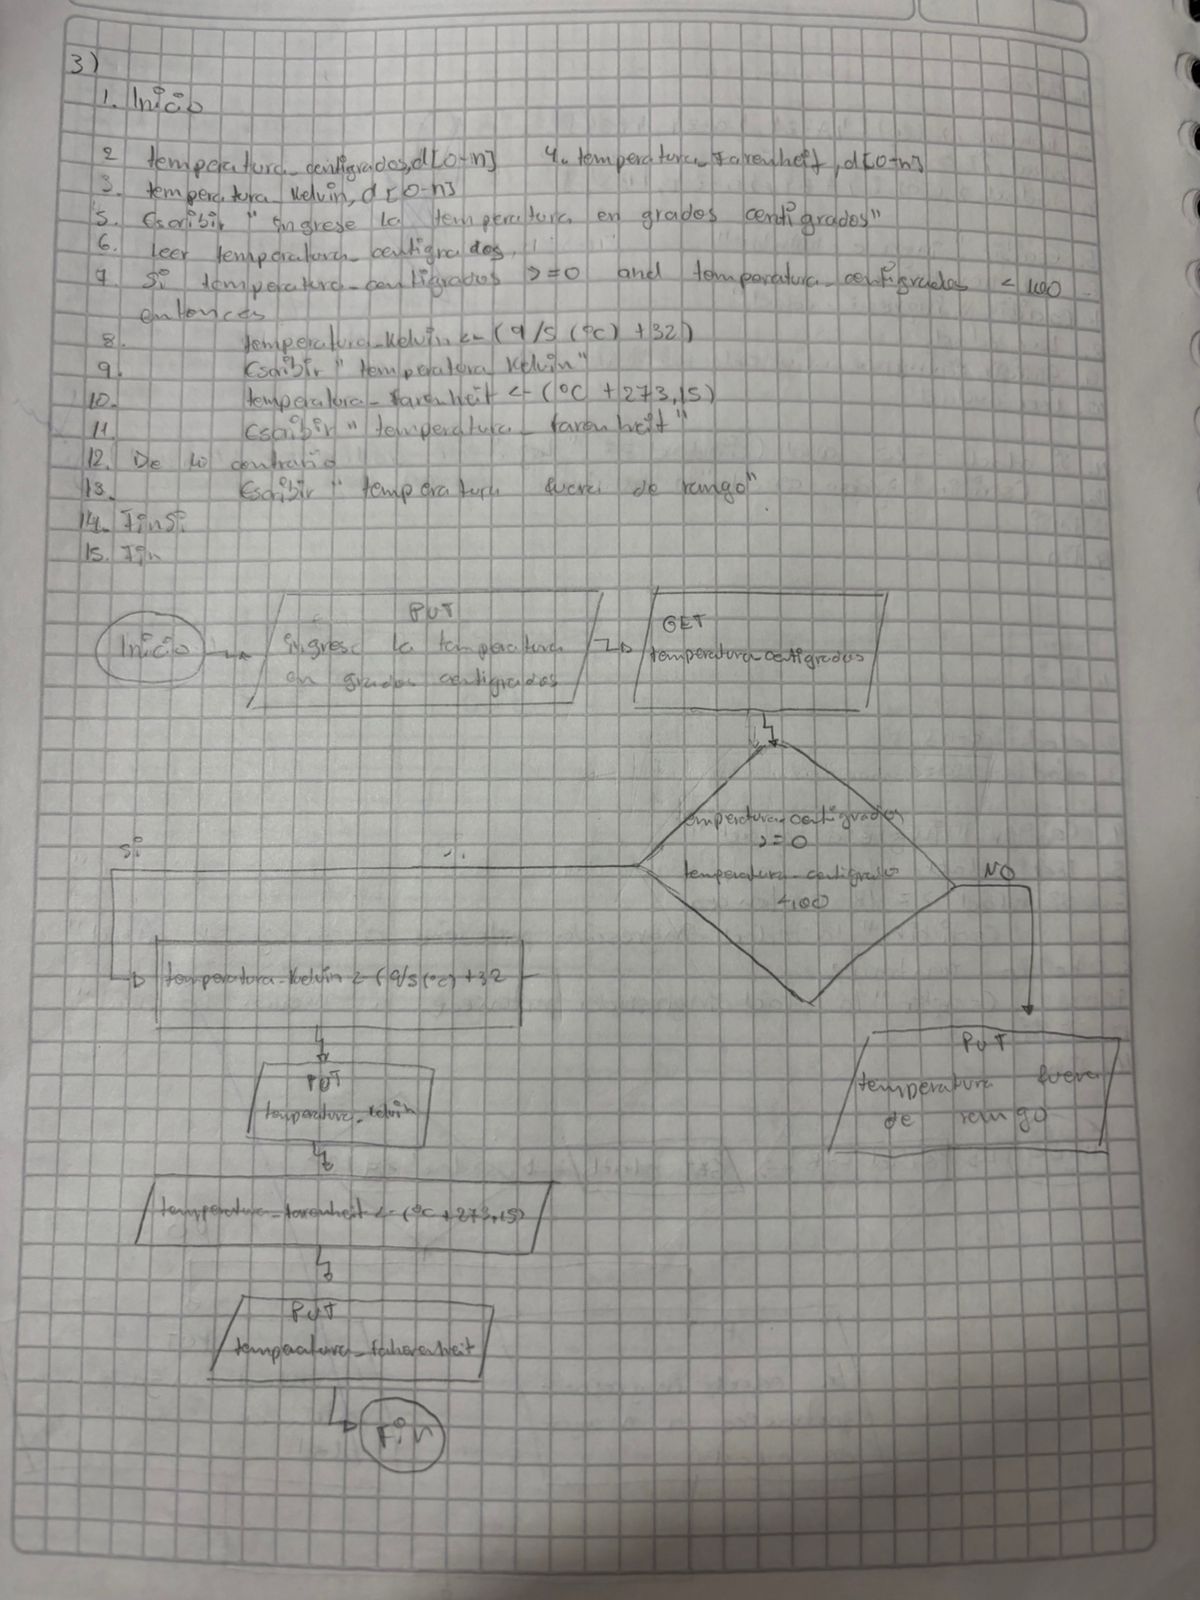 3)
1. Inicio
2 temperatura_centigrados,d[0-n] 4. temperatura_Farenheit,d[0-n]
3. temperatura Kelvin,d[0-n]
5. Escribir "ingrese la temperatura en grados centigrados"
6. leer temperatura_centigrados
7. Si temperatura_centigrados >=0 and temperatura_centigrados <100
entonces
8. temperatura_Kelvin <- (9/5 (°c) +32)
9. Escribir "temperatura Kelvin"
10. temperatura_farenheit <- (°C +273,15)
11. Escribir "temperatura_farenheit"
12. De lo contrario
13. Escribir "temperatura fuera de rango"
14. FinSi
15. Fin
Inicio
PUT
ingrese la temperatura
en grados centigrados
GET
temperatura_centigrados
temperatura_centigrados
>=0
temperatura_centigrados
<100
Si
NO
temperatura_Kelvin <- (9/5(°c) +32
PUT
temperatura_kelvin
temperatura_farenheit <-(°C +273,15)
PUT
temperatura_faherenheit
Fin
PUT
temperatura fuera
de rango